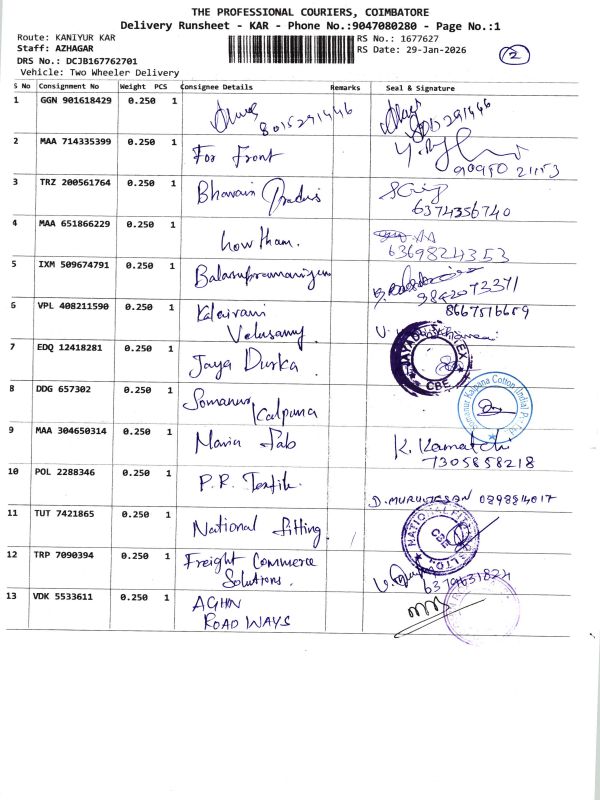 THE PROFESSIONAL COURIERS, COIMBATORE
Delivery Runsheet - KAR - Phone No.:9047080280 - Page No.:1
Route: KANIYUR KAR
RS No.: 1677627
Staff: AZHAGAR
RS Date: 29-Jan-2026
2
DRS No.: DCJB167762701
Vehicle: Two Wheeler Delivery
S No Consignment No Weight PCS Consignee Details Remarks Seal & Signature
1 GGN 901618429 0.250 1 8015291446 8015291446
2 MAA 714335399 0.250 1 For Front
3 TRZ 200561764 0.250 1 Bhavani 6374356740
4 MAA 651866229 0.250 1 Gowtham. 6369824353
5 IXM 509674791 0.250 1 Balasupramaniyem 9842073371
6 VPL 408211590 0.250 1 Kalaivani 8667516659
Velusamy
7 EDQ 12418281 0.250 1 Jaya Durka CBE
8 DDG 657302 0.250 1 Somanur Somanur Kalpana Cotton (India) P. Ltd.
Kalpana
9 MAA 304650314 0.250 1 Maria Fab K. Kamatchi
7305858218
10 POL 2288346 0.250 1 P.R. Textile.
11 TUT 7421865 0.250 1 National fitting NATIONAL FITTINGS LTD CBE
12 TRP 7090394 0.250 1 Freight Commerce
Solutions.
13 VDK 5533611 0.250 1
ROADWAYS